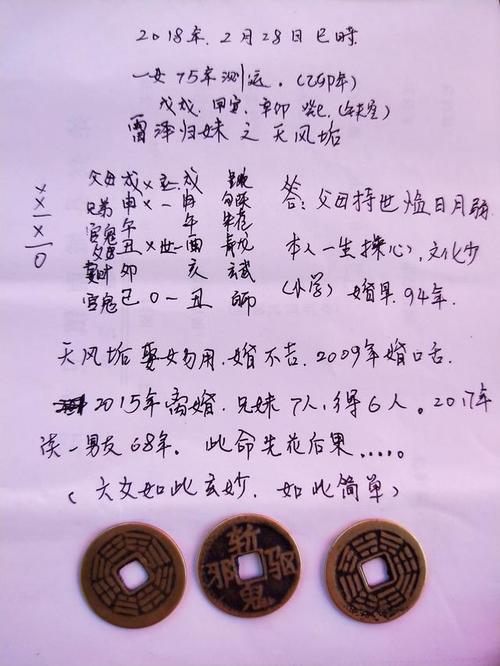 2018年.2月28日巳时
一女75年测运.(乙卯年)
戊戌.甲寅.辛卯 癸巳.(午未空)
雷泽归妹之天风姤
父母戌×应.戌
兄弟申×一申
官鬼午 午
父母丑×世一酉 青龙
妻财卯 亥 玄武
官鬼巳 0一丑
×
×
×
0
答:父母持世
本人一生操心).文化少
(小学) 婚早.94年.
天风姤娶女勿用.婚不吉.2009年婚口舌.
2015年离婚.兄妹7人,得6人。2017年
谈一男友68年. 此命先花后果.....
(六爻如此玄妙.如此简单)
斩
邪
驱
鬼